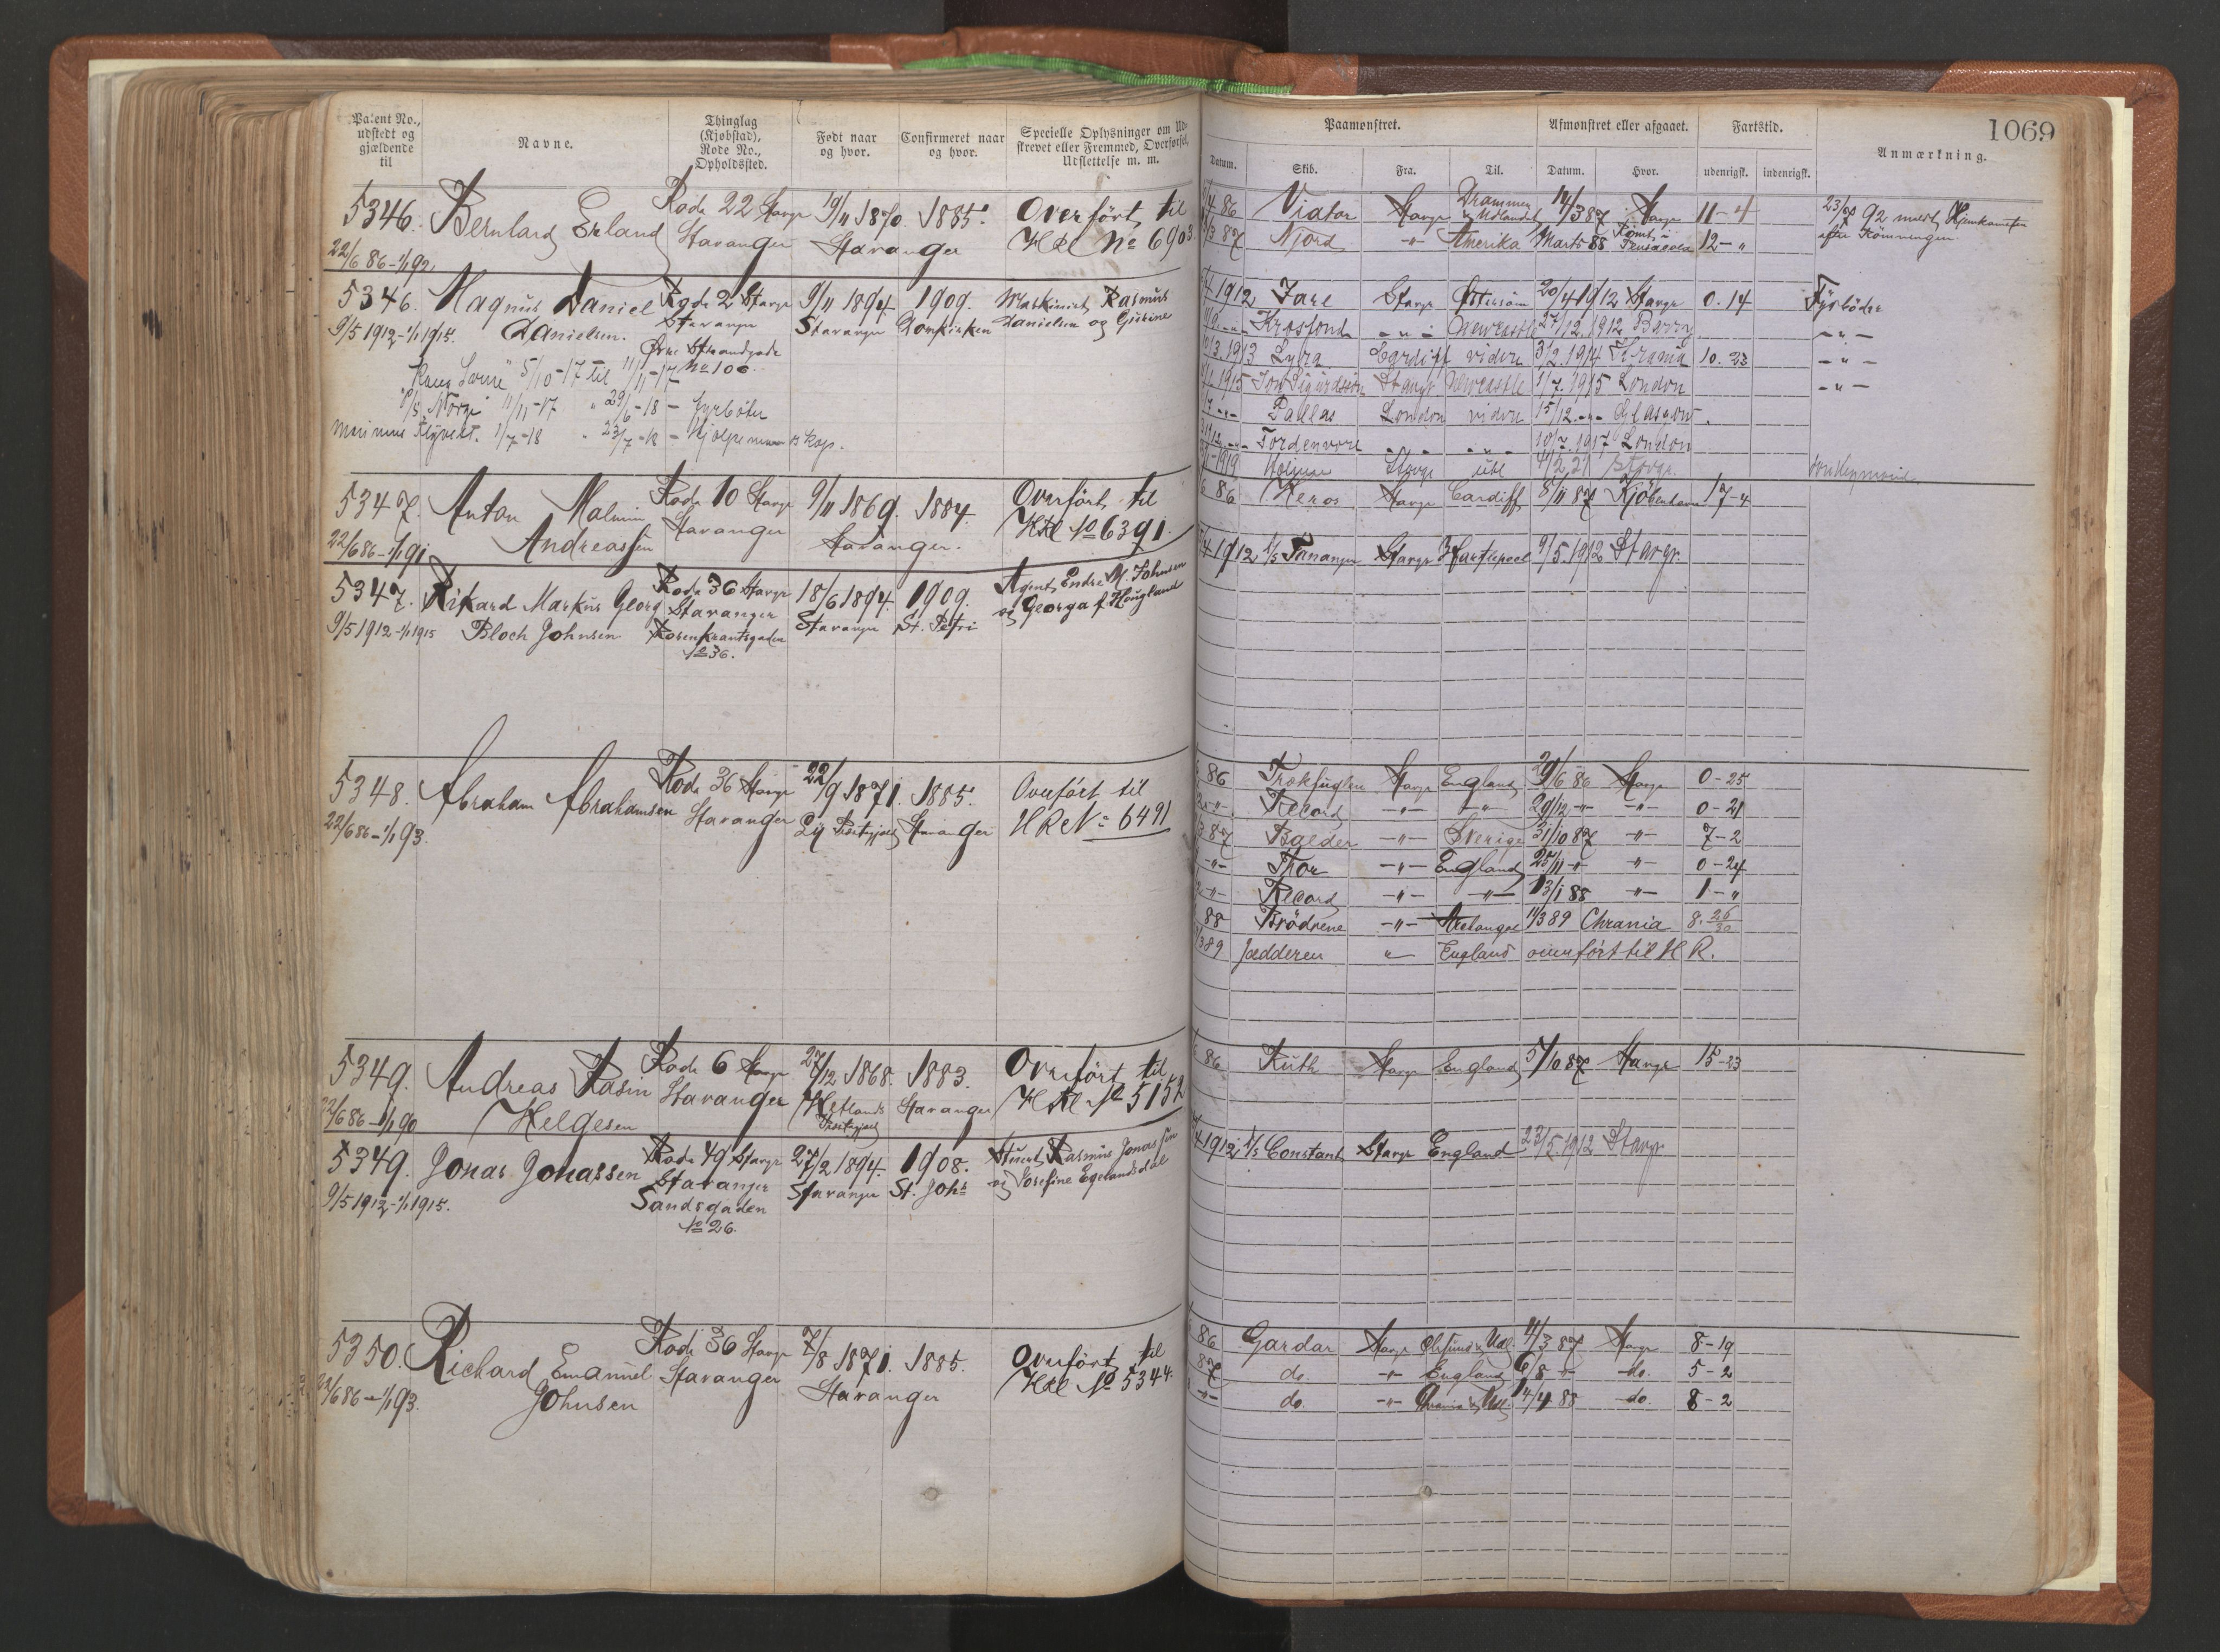 1069
Patent No., udstedt og gjældende til
Navne.
Thinglag (Kjøbstad), Rode No., Opholdssted.
Født naar og hvor.
Confirmeret naar og hvor.
Specielle Oplysninger om Udstrevet eller Fremmed, Overførsel, Udslettelse m. m.
Paamønstret.
Afmønstret eller afgaaet.
Fartstid.
Anmærkning.
Datum.
Skib.
Fra.
Til.
Datum.
Hvor.
udenrigsk.
indenrigsk.
5346. Bernhard Erland Rode 22 Stavgr 19/11 1870. 1885. Overført til
22/6 86 - 1/1 92. Stavanger Stavanger HRl No 6903
86 Viator Stavgr Drammen & Udlandet 14/3 87 Stavgr 11-4
87 Njord -"- Amerika Marts 88 Rømt i Pensacola 12-"
23/7 92 meldt Hjemkommen
efter Rømmningen
5346. Magnus Daniel Rode 2 Stavgr 9/11 1894. 1909. Maskinist Rasmus
9/5 1912 - 1/1 1915. Danielsen. Stavanger Stavanger Domkirken Danielsen og Gurine
Øvre Strandgade
No 100.
5/10-17 til 11/11-17
D/S "Norge" 11/11-17 " 29/6-18 - Fyrbøter
1/7-18 " 23/7-18
1912 Jarl Stavgr Østersøen 20/4 1912 Stavgr 0.14 Fyrbøder
Krosfond -"- Newcastle 27/12 1912 Barry -"-
1913 Lyra Cardiff videre 3/2 1914 Chrania 10.23 -"-
1915 Jon Sigurdsson Stavgr Newcastle 1/7 1915 London -"-
Pallas London videre 15/12 -"- Glasgow
Tordenvore -"- -"- 10/7 1917 London
1919 Stavgr Stavgr
5347. Anton Malmin Rode 10 Stavgr 9/11 1869. 1884. Overført til
22/6 86 - 1/1 91 Andreassen Stavanger Stavanger. HRl No 6391.
86 Heros Stavgr Cardiff 8/11 87 Kjøbenhavn 17-4
5347. Rikard Markus Georg Rode 36 Stavgr 18/6 1894. 1909. Agent Endre M. Johnsen
9/5 1912 - 1/1 1915 Bloch Johnsen Stavanger Stavanger St. Petri og Georga f. Hougland
Rosenkrantzgaden
No 36.
1912 D/S Tananger Stavgr Hartlepool 9/5 1912 Stavgr.
5348. Abraham Abrahamsen Rode 36 Stavgr 22/9 1871. 1885. Overført til
22/6 86 - 1/1 93. Stavanger Ly Prestegjæld Stavanger HRl No 6491
86 Trækfuglen Stavgr England 29/6 86 Stavgr 0-25
-"- Record -"- -"- 29/12 -"- -"- 0-21
87 Balder -"- Sverige 31/10 87 -"- 7-2
-"- Thor -"- England 25/11 -"- -"- 0-24
-"- Record -"- -"- 13/1 88 -"- 1-"
88 Brødrene -"- Arkangel 11/3 89 Chrania 8. 26/30
89 Jædderen " England overført til H R.
5349. Andreas Rasin Rode 6 Stavgr 27/12 1868. 1883. Overført til
22/6 86 - 1/1 90 Helgesen Stavanger Hetlands Prestegjæld Stavanger HRl No 5152
86 Ruth Stavgr England 5/10 87 Stavgr 15-23
5349. Jonas Jonassen Rode 49 Stavgr 27/2 1894. 1908. Stuert Rasmus Jonassen
9/5 1912 - 1/1 1915. Stavanger Stavanger St. Johs og Josefine Egelandsdal
Sandsgaden
No 26.
1912 D/S Constant Stavgr England 23/5 1912 Stavgr
5350. Richard Emanuel Rode 36 Stavgr 7/8 1871. 1885. Overført til
22/6 86 - 1/1 93. Johnsen Stavanger Stavanger HRl No 5344.
86 Gardar Stavgr 11/3 87 Stavgr 8-19
87 do. -"- England 6/8 -"- do. 5-2
-"- do. -"- Chrania & Udl. 14/4 88 do. 8-2